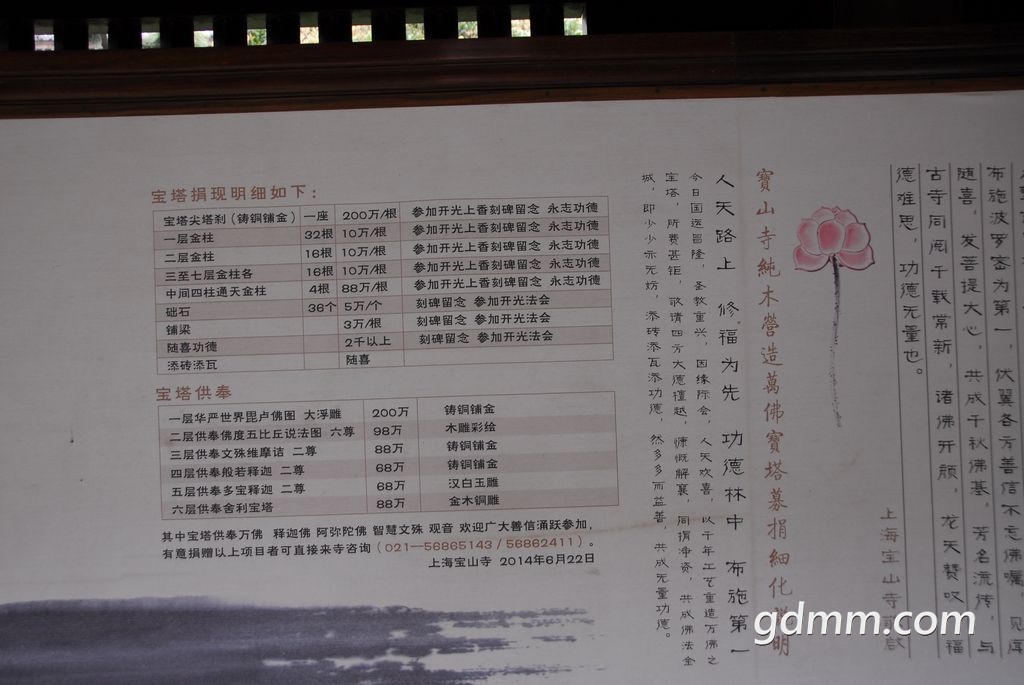 布施波罗密为第一，伏翼各方善信不忘佛嘱，见闻
随喜，发菩提大心，共成千秋佛基，芳名流传，与
古寺同阅千载常新，诸佛开颜，龙天赞叹，福
德难思，功德无量也。
上海宝山寺
寶山寺純木營造萬佛寶塔募捐細化說明
人天路上 修福为先 功德林中 布施第一
今日国运昌隆，圣教重兴，因缘际会，人天欢喜，以千年工艺重造万佛之
宝塔，所费甚钜，敬请四方大德檀越，慷慨解囊，同捐净资，共成佛法金
城，即少少亦无妨，添砖添瓦添功德，然多多而益善，共成无量功德。
宝塔捐现明细如下：
宝塔尖塔刹（铸铜铺金） 一座 200万/根 参加开光上香刻碑留念 永志功德
一层金柱 32根 10万/根 参加开光上香刻碑留念 永志功德
二层金柱 16根 10万/根 参加开光上香刻碑留念 永志功德
三至七层金柱各 16根 10万/根 参加开光上香刻碑留念 永志功德
中间四柱通天金柱 4根 88万/根 参加开光上香刻碑留念 永志功德
础石 36个 5万/个 刻碑留念 参加开光法会
铺梁 3万/根 刻碑留念 参加开光法会
随喜功德 2千以上 刻碑留念 参加开光法会
添砖添瓦 随喜
宝塔供奉
一层华严世界毘卢佛图 大浮雕 200万 铸铜铺金
二层供奉佛度五比丘说法图 六尊 98万 木雕彩绘
三层供奉文殊维摩诘 二尊 88万 铸铜铺金
四层供奉般若释迦 二尊 68万 铸铜铺金
五层供奉多宝释迦 二尊 68万 汉白玉雕
六层供奉舍利宝塔 88万 金木铜雕
其中宝塔供奉万佛 释迦佛 阿弥陀佛 智慧文殊 观音 欢迎广大善信涌跃参加，
有意捐赠以上项目者可直接来寺咨询（021—56865143 / 56862411）。
上海宝山寺 2014年6月22日
gdmm.com